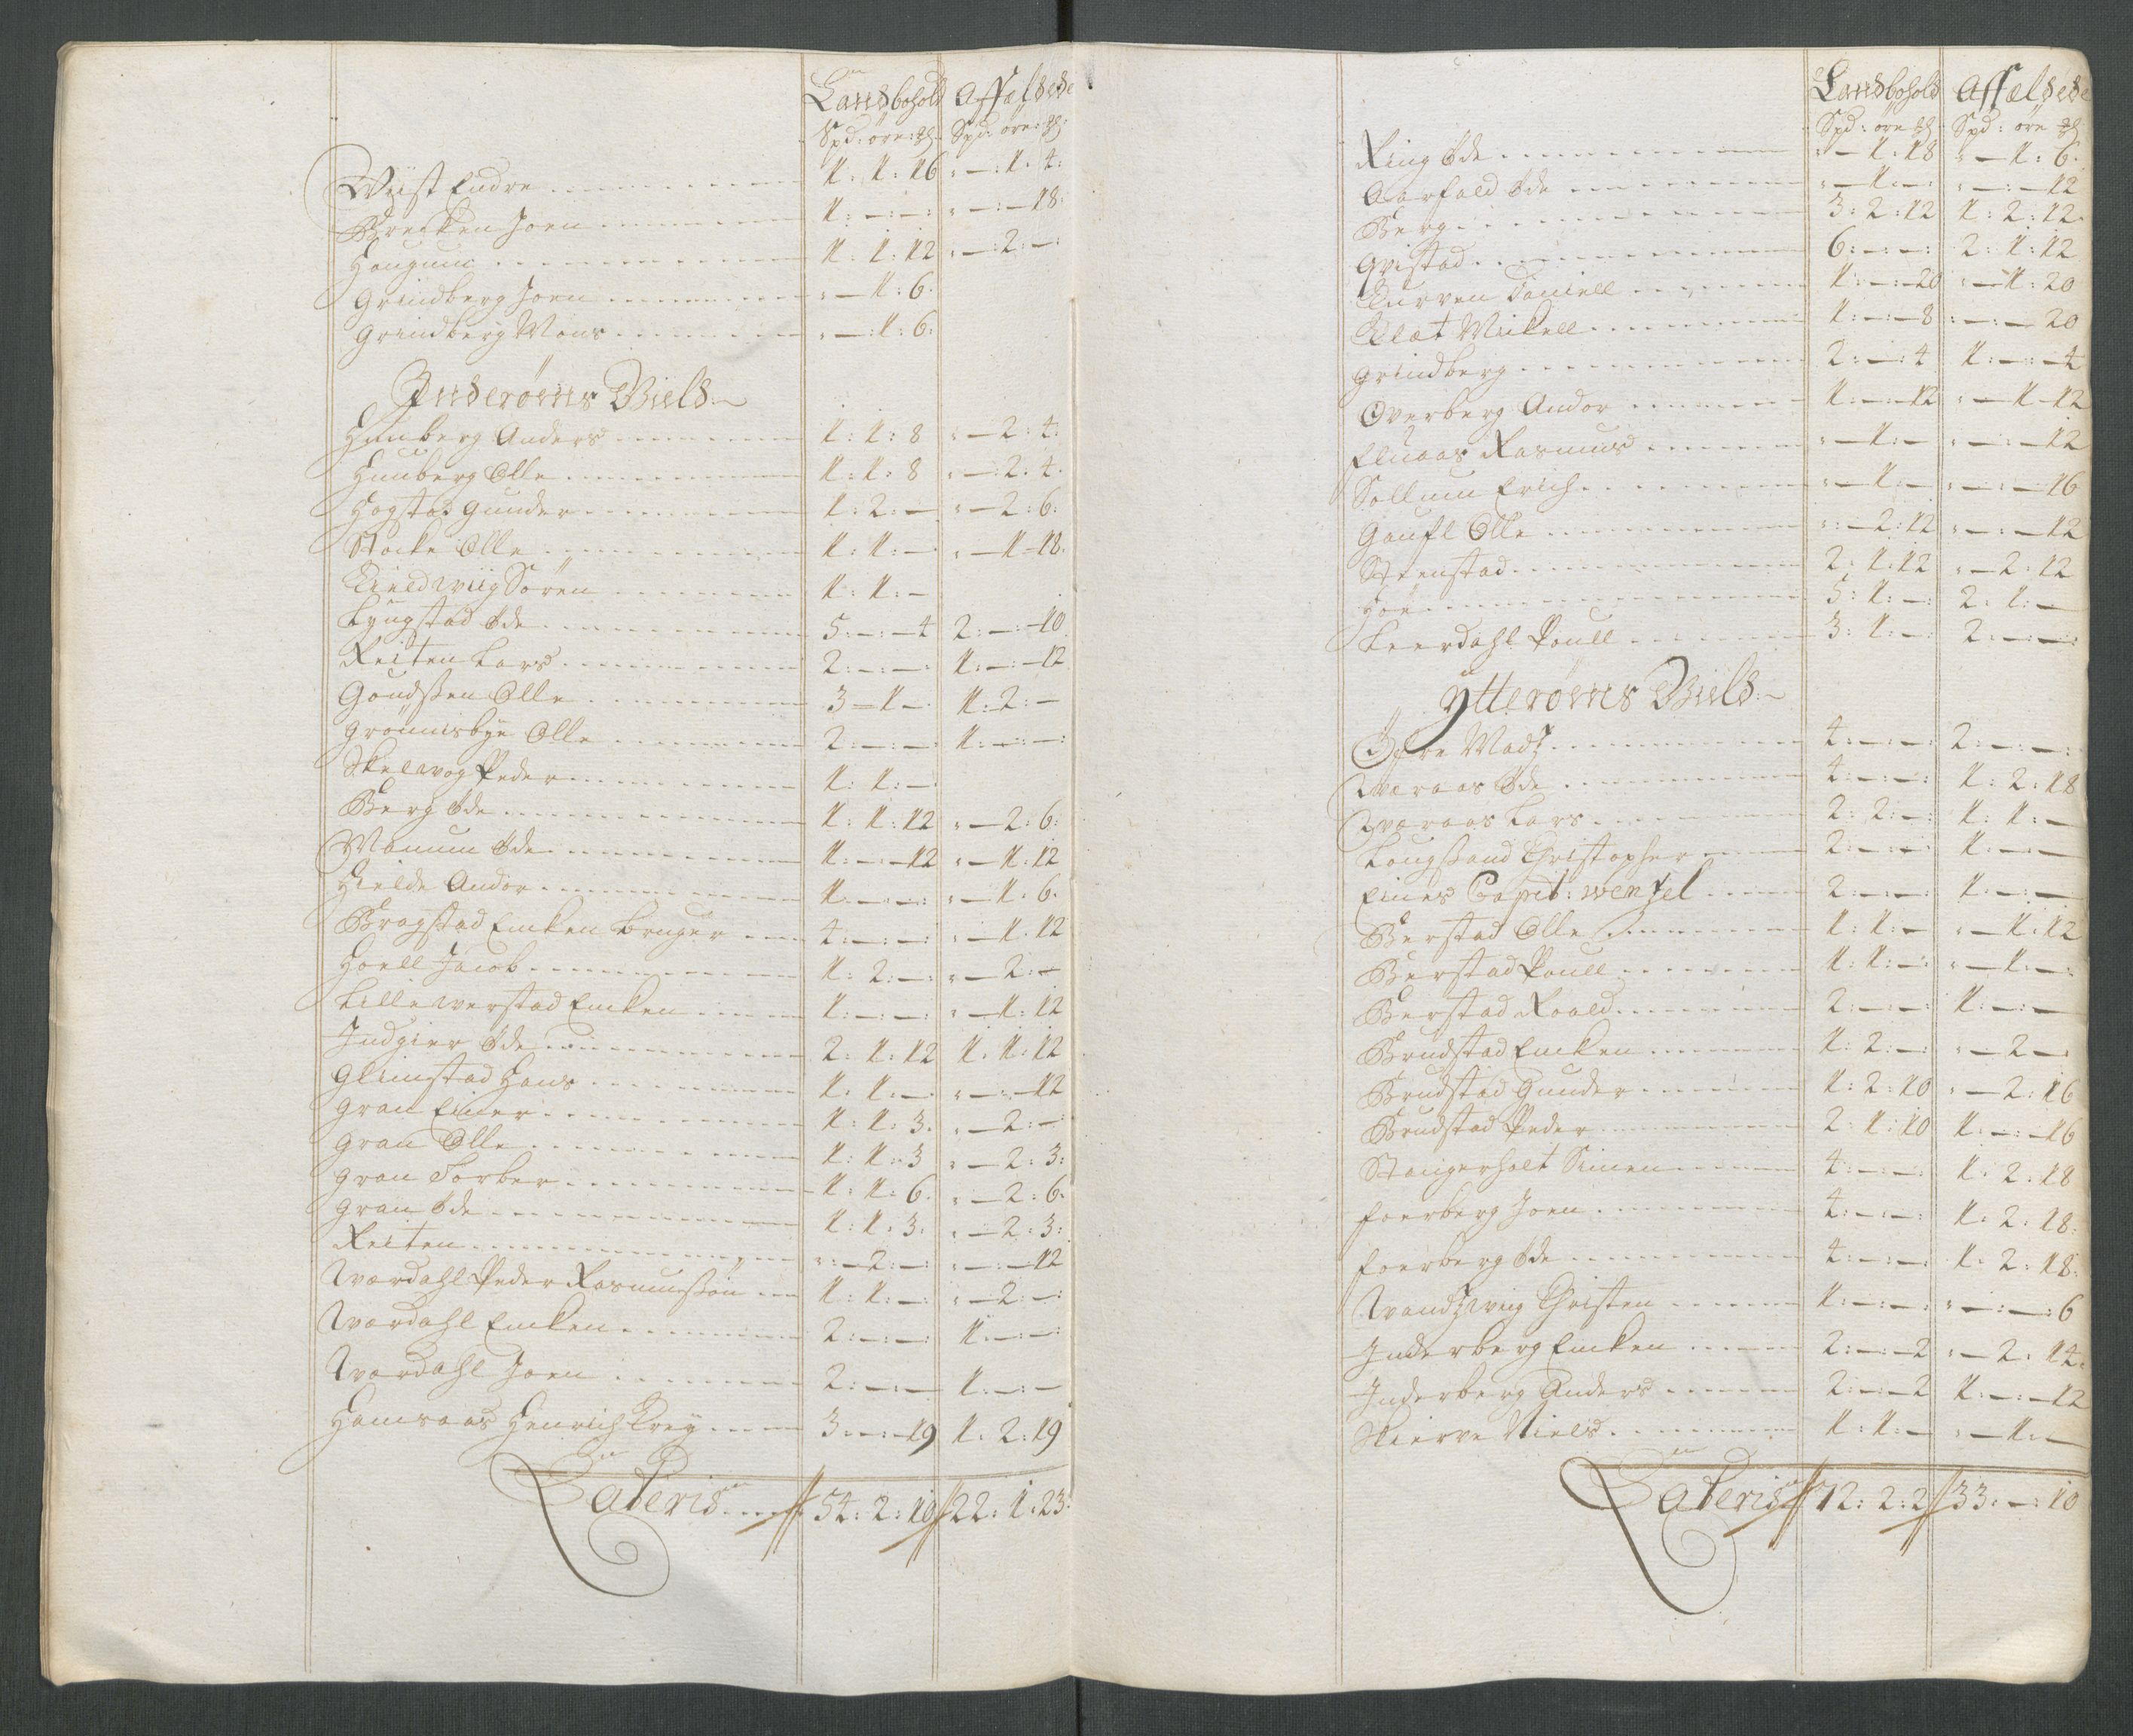 Landbohold Affældede
Spd: öre: Spd: öre:
Wiist Endre 1: 1: 16 : — : 1: 4:
Brecken Joen 1: — : — : : — : — 18:
Haugum 1: 1: 12 : — : 2: — :
Grindberg Joen : — 1: 6:
Grindberg Mons : — : 1: 6:
Inderöens Gield
Hunberg Anders 1: 1: 8 : — 2: 4:
Hunberg Olle 1: 1: 8 : — : 2: 4:
Hogstad Gunder 1: 2: — : — 2: 6:
Stocke Olle 1: 1: — : — 1 — 18:
Kieldwiig Sören 1: 1: —
Lyngstad öde 5: — : — 4 2: — : — 10
Reiten Lars 2: — : — : 1: — : — 12
Olle 3 — 1 — 1: 2: —
Grönnisbye Olle 2: — : — : 1: — : — :
Skelwog Peder 1: 1: —
Berg öde 1: 1: 12 : — 2: 6:
Manum öde 1: — : — 12 : — 1: 12
Hielde Andor 1: — : — : : — 1: 6:
Bragstad Encken bruger 4: — : — : : — 1: 12
Hoell Jacob 1: 2: — : : — 2: —
Lille werstad Encken 1: — : — : : — 1: 12
Indgier öde 2: 1: 12 1: 1: 12
Glimstad Hans 1: 1: — : — : — 12
Gran Einer 1: 1: 3: : — 2: —
Gran Olle 1: 1: 3 : — 2: 3:
Gran Torber 1: 1: 6: : — 2: 6:
Gran öde 1: 1: 3: : — 2: 3:
Reiten : — 2: — : : — : — 12
Wardahl Peder Rasmussön 1: 1: — : : — 2: — :
Wardahl Encken 2: — : — : 1: — : — :
Wardahl Joen 2: — : — 1: — : —
Hamraas Henrich Frey 3: — : — 19 1: 2: 19
Lateris 54: 2: 10 22: 1: 23:
Landbohold Affældede
Spd: öre Spd: öre
Ring öde : — 1: 18 : — 1: 6:
Aarfald öde : — 1: — : : — : — 12
Berg 3: 2: 12 1: 2: 12
Qvistad 6: — : — : 2: 1: 12
Kurven Daniell 1: — : — 20 : — 1: 20
Klæt Mickell 1: — : — 8 : — : — 20
Grindberg 2: — : 4 1: — : — 4
Overberg Andor 1: — : — 12 : — 1 — 12
Elnaas Rasmus : — 1: — : — : — 12
Sollum Erich : — 1: — : — : — 16
Gausl Olle : — 2: 12 : — : — 12
Steenstad 2: 1: 12 : — 2: 12
Hoe 5: 1: — : 2: 1: —
Leerdahl Poull 3: 1: — : 2: — : — :
Ytteröens Gield
Öfre Madz 4: — : — : 2: — : — :
Waraas öde 4: — : — : 1: 2: 18
Waraas Lars 2: 2: — : 1: 1: —
Langsand Christopher 2: — : — : 1: — : —
Eines Capit: wenzel 2: — : — : 1: — : —
Berstad Olle 1: 1: — : — 1: 12
Berstad Poull 1: 1: — : : — 1: — :
Berstad Roald 2: — : — : 1: — : —
Brudstad Encken 1: 2: — : : — 2 — :
Brudstad Gunder 1: 2: 10 : — 2: 16
Brudstad Peder 2: 1: 10 1: — : — 16
Stangerholt Simen 4: — : — : 1: 2: 18
Foerberg Joen 4: — : — : 1: 2: 18:
Foerberg öde 4: — : — : 1: 2: 18:
Wandzwiig Christen 1: — : — : : — : — : 6
Inderberg Encken 2: — : — 2 : — 2: 14:
Inderberg Anders 2: — : — 2 1: — : — 12
Skierve Niels 1: 1: — : — 1: —
Lateris 72: 2: 2 33: — : 10